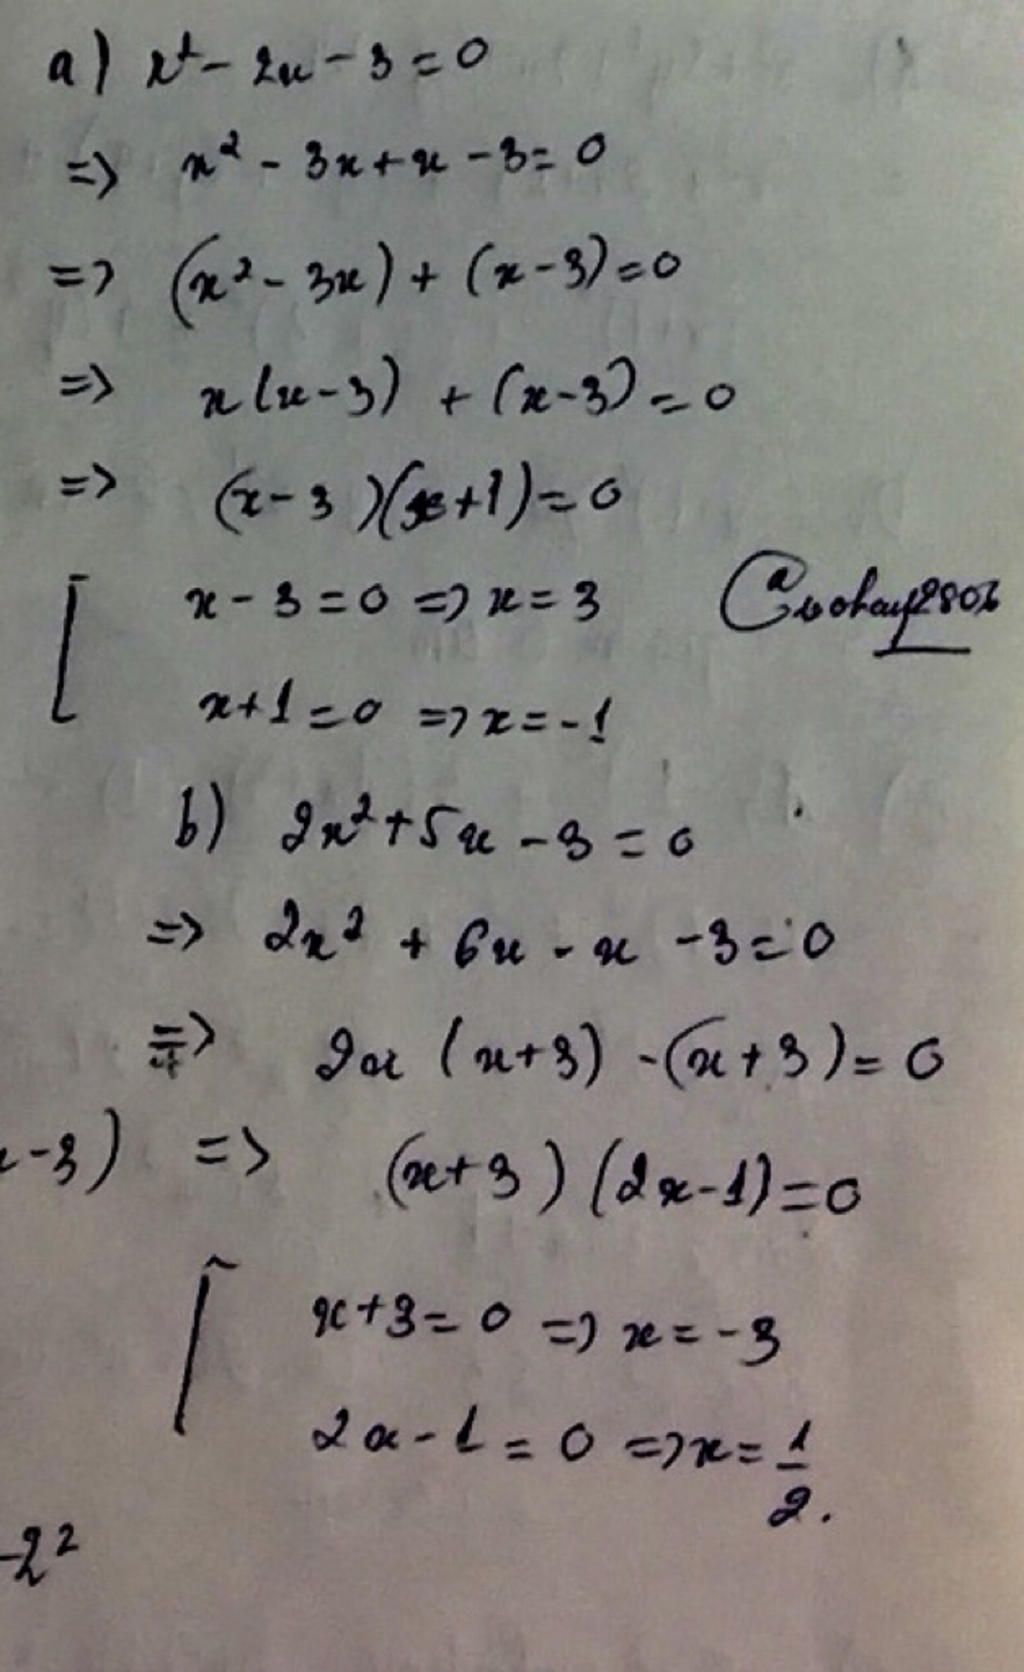 a) x² - 2x - 3 = 0
=> x² - 3x + x - 3 = 0
=> (x² - 3x) + (x - 3) = 0
=> x(x - 3) + (x - 3) = 0
=> (x - 3)(x + 1) = 0
[ x - 3 = 0 => x = 3
x + 1 = 0 => x = -1
b) 2x² + 5x - 3 = 0
=> 2x² + 6x - x - 3 = 0
=> 2x (x + 3) - (x + 3) = 0
-3) => (x + 3)(2x - 1) = 0
[ x + 3 = 0 => x = -3
2x - 1 = 0 => x = 1/2.
-2²